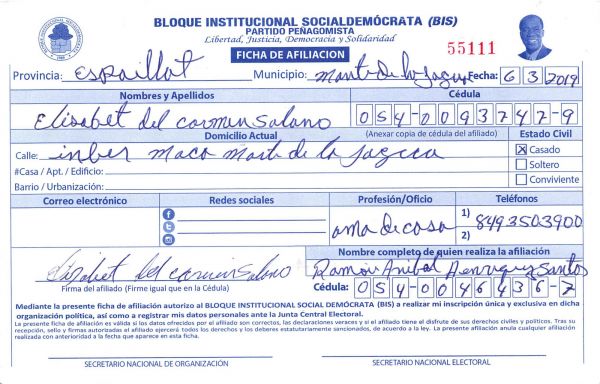 BLOQUE INSTITUCIONAL SOCIALDEMÓCRATA (BIS)
PARTIDO PEÑAGOMISTA
Libertad, Justicia, Democracia y Solidaridad
FICHA DE AFILIACION
55111
Provincia: espaillat Municipio: Monte de la Jagua Fecha: 6 3 2019
Nombres y Apellidos Cédula
Elisabet del carmen Solano 054-0093747-9
Domicilio Actual (Anexar copia de cédula del afiliado) Estado Civil
Calle: Monte de la Jagua X Casado
#Casa / Apt. / Edificio: Soltero
Barrio / Urbanización: Conviviente
Correo electrónico Redes sociales Profesión/Oficio Teléfonos
ama de casa 1) 8493503900
2)
Nombre completo de quien realiza la afiliación
Elisabet del carmen Solano Ramón Anibal Henriquez Santos
Firma del afiliado (Firme igual que en la Cédula) Cédula: 054-0046436-7
Mediante la presente ficha de afiliación autorizo al BLOQUE INSTITUCIONAL SOCIAL DEMÓCRATA (BIS) a realizar mi inscripción única y exclusiva en dicha
organización política, así como a registrar mis datos personales ante la Junta Central Electoral.
La presente ficha de afiliación es válida si los datos ofrecidos por el afiliado son correctos, las declaraciones veraces y si el afiliado tiene el disfrute de sus derechos civiles y políticos. Tras su
recepción, sello y firmas autorizadas el afiliado ejercerá todos los derechos y los deberes estatutariamente sancionados, de acuerdo a la ley. La presente afiliación anula cualquier afiliación
realizada con anterioridad a la fecha que aparece en esta ficha.
SECRETARIO NACIONAL DE ORGANIZACIÓN SECRETARIO NACIONAL ELECTORAL